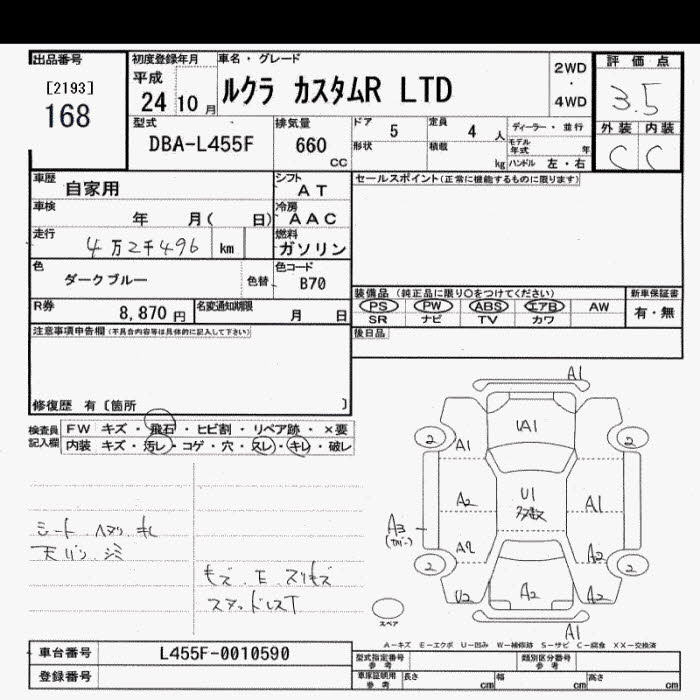 出品番号 初度登録年月 車名・グレード 評価点
[2193] 平成 ルクラ カスタムR LTD 2WD
168 24 10月 ・ 4WD 3.5
型式 排気量 ドア 5 定員 4人 ディーラー・並行 外装 内装
DBA-L455F 660 cc 形状 積載 kg モデル年式 年 C C
ハンドル 左・右
車歴 自家用 シフト AT セールスポイント(正常に機能するものに限ります)
車検 年 月( 日) 冷房 AAC
走行 4万2千496 km 燃料 ガソリン
色 ダークブルー 色替 色コード B70
装備品(純正品に限り○をつけてください) 新車保証書
R券 8,870円 名変通知期限 月 日 PS PW ABS エアB AW 有・無
SR ナビ TV カワ
注意事項申告欄(不具合内容等は具体的に記入して下さい) 後日品
修復歴 有〔箇所 〕
検査員記入欄 FW キズ・飛石・ヒビ割・リペア跡・×要
内装 キズ・汚レ・コゲ・穴・スレ・キレ・破レ
A1
UA1
2 2
A1
U1
多数
A2 A1
A3
A2 A2
2 2
U2 A2 A2
A1
シート ヘタリ キレ
天バリ シミ
モズ E スリキズ
スペア
A-キズ E-エクボ U-凹み W-補修跡 S-サビ C-腐食 XX-交換済
車台番号 L455F-0010590 型式指定番号 参考 類別区分番号 参考
登録番号 車庫証明用 参考 長さ cm 幅 cm 高さ cm